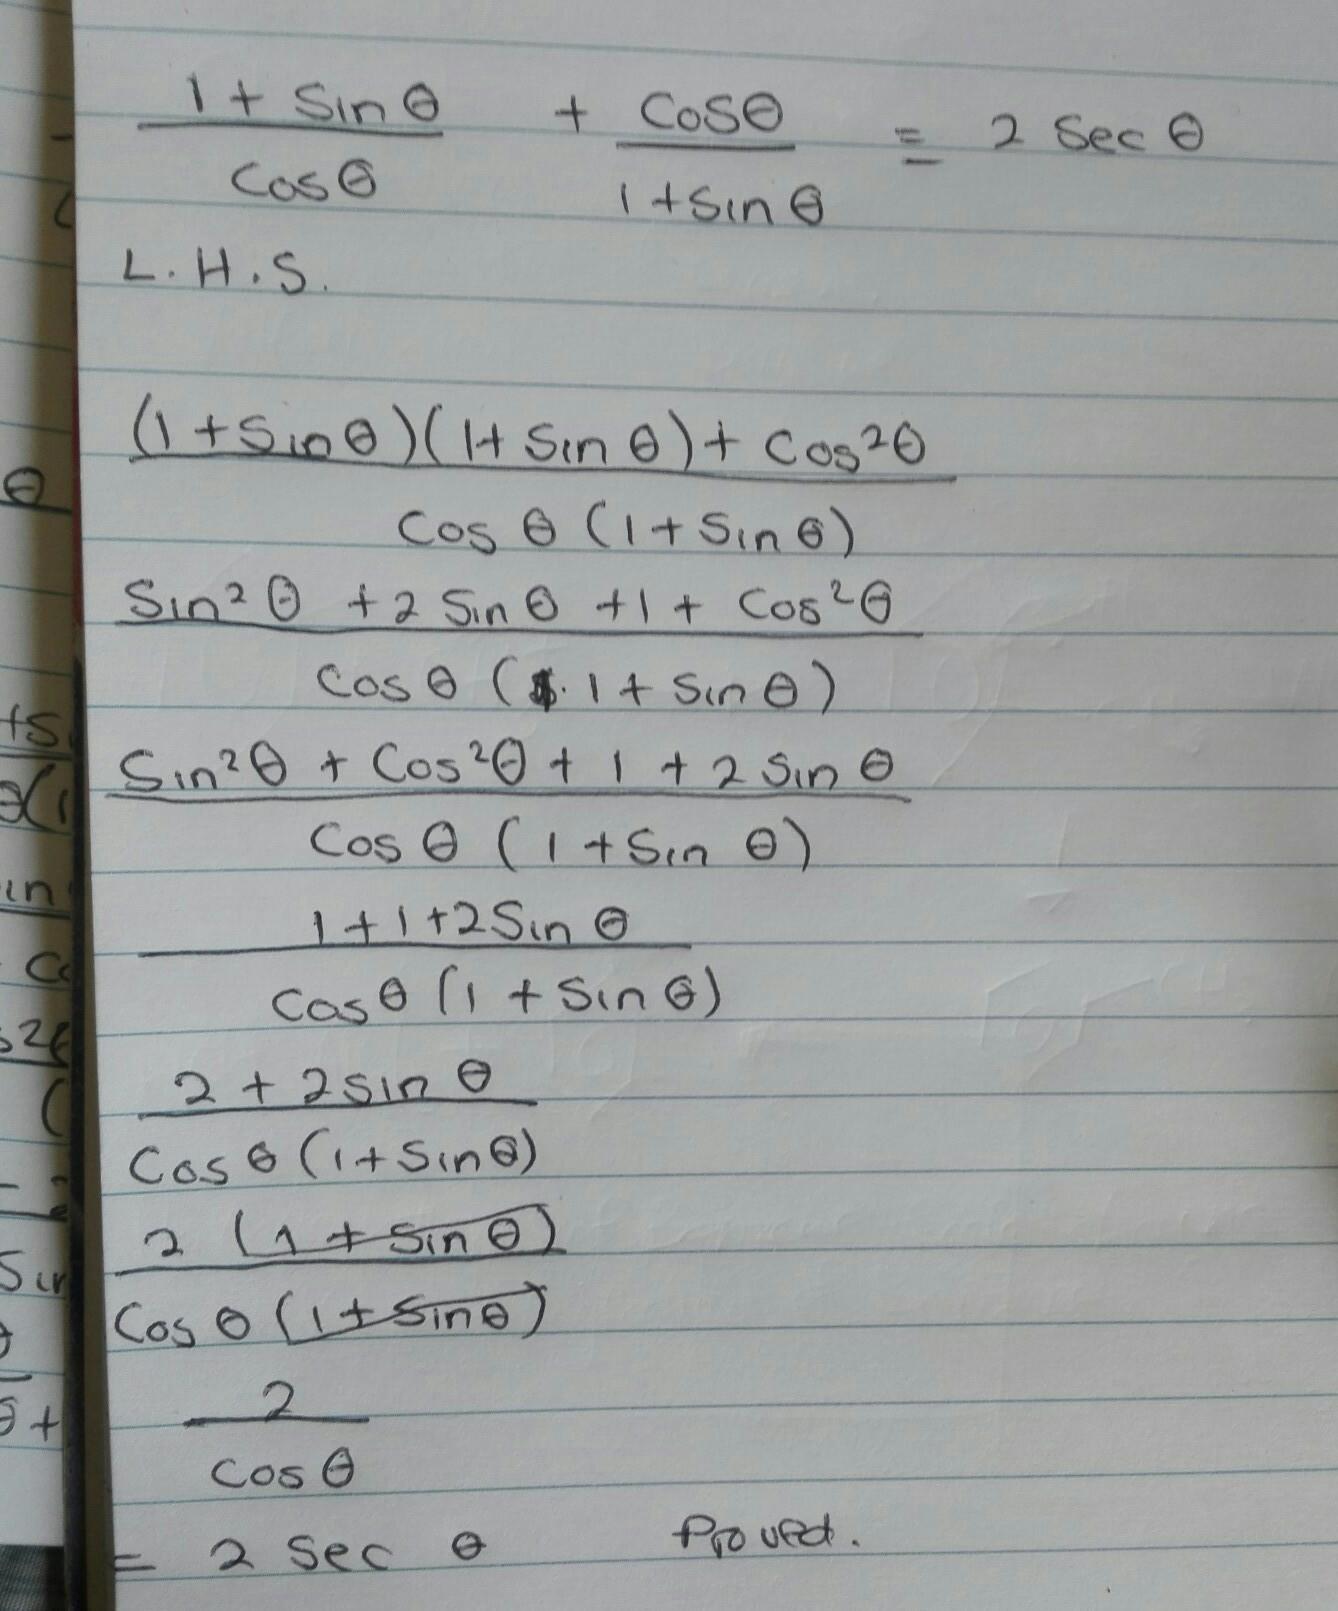 1 + Sin θ + Cosθ = 2 Sec θ
Cosθ 1+Sin θ
L.H.S.
(1+Sinθ)(1+ Sin θ)+ Cos²θ
Cos θ (1+ Sin θ)
Sin²θ +2 Sin θ +1 + Cos²θ
Cos θ ( 1+ Sin θ)
Sin²θ + Cos²θ + 1 + 2 Sin θ
Cos θ (1+Sin θ)
1+1+2Sin θ
Cosθ (1 + Sin θ)
2 + 2 Sin θ
Cos θ (1+ Sinθ)
2 (1 + Sin θ)
Cos θ (1+ Sinθ)
2
Cos θ
= 2 Sec θ Proved.